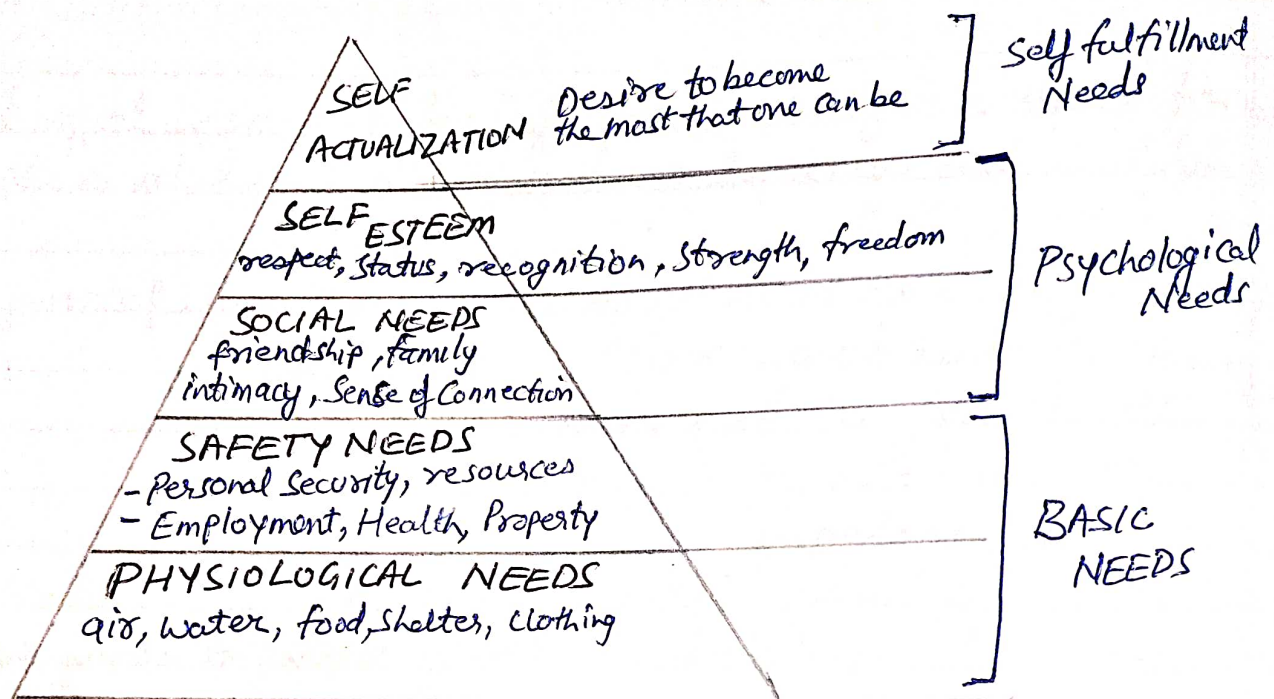 SELF
ACTUALIZATION
Desire to become
the most that one can be
Self fulfillment
Needs
SELF ESTEEM
respect, Status, recognition, Strength, freedom
Psychological
Needs
SOCIAL NEEDS
friendship, family
intimacy, Sense of Connection
SAFETY NEEDS
- Personal Security, resources
- Employment, Health, Property
BASIC
NEEDS
PHYSIOLOGICAL NEEDS
air, water, food, Shelter, Clothing